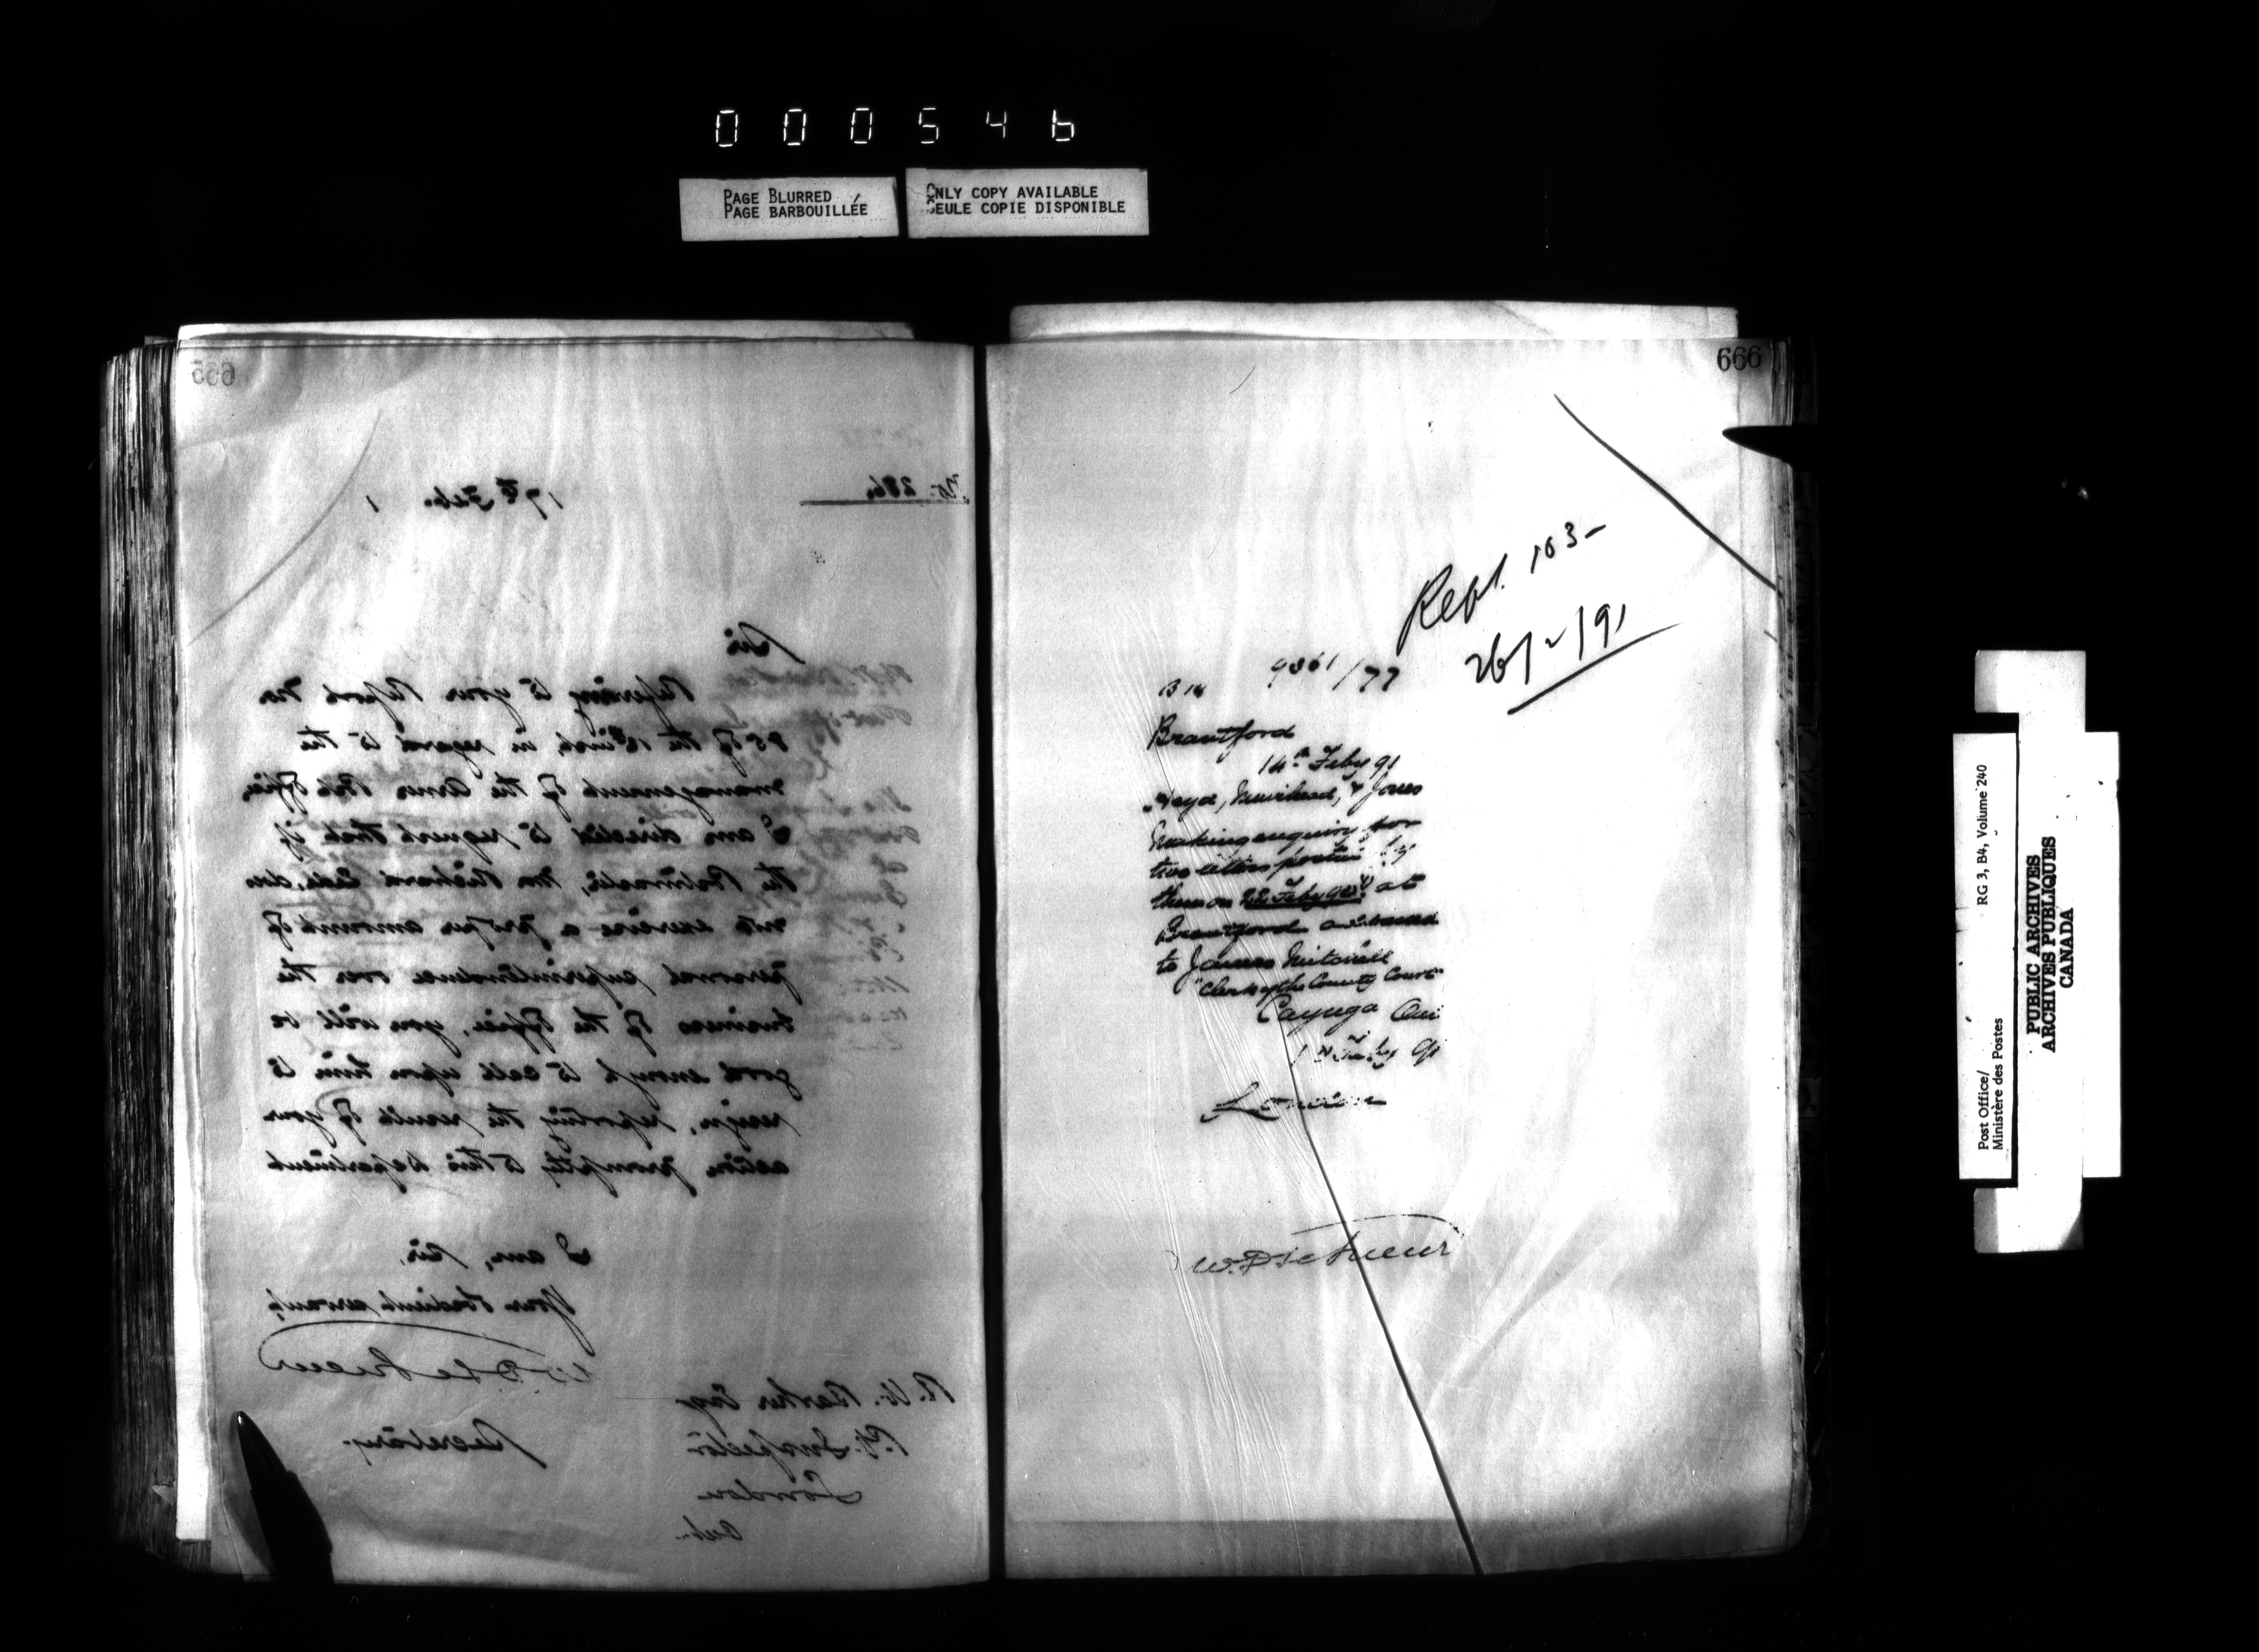 000546
PAGE BLURRED
PAGE BARBOUILLÉE
ONLY COPY AVAILABLE
SEULE COPIE DISPONIBLE
665
No. 286
17th Feb. 1
Sir
Referring to your Report No
85 of the 12th inst. in regard to the
management of the Amer Post Office,
I am directed to request that if
the Postmaster, Mr Richard does
not exercise a proper amount of
personal superintendence over the
business of the Office, you will be
good enough to call upon him to
resign, reporting the result of your
action promptly to this Department
I am, Sir,
Your obedient servant,
W. D. Le Sueur
Secretary.
R. W. Barker Esqr
P.O. Inspector
London
Ont.
666
Rept. 103-
26/2/91
B 14 9361/77
Brantford
14th Feby 91
Muirhead, & Jones
Making enquiry for
two letters posted by
them on 22 Feby 90 at
Brantford addressed
to James Mitchell
"Clerk of the County Court"
Cayuga Ont
Feby 91
London
W. D. Le Sueur
Post Office/
Ministère des Postes
RG 3, B4, Volume 240
PUBLIC ARCHIVES
ARCHIVES PUBLIQUES
CANADA